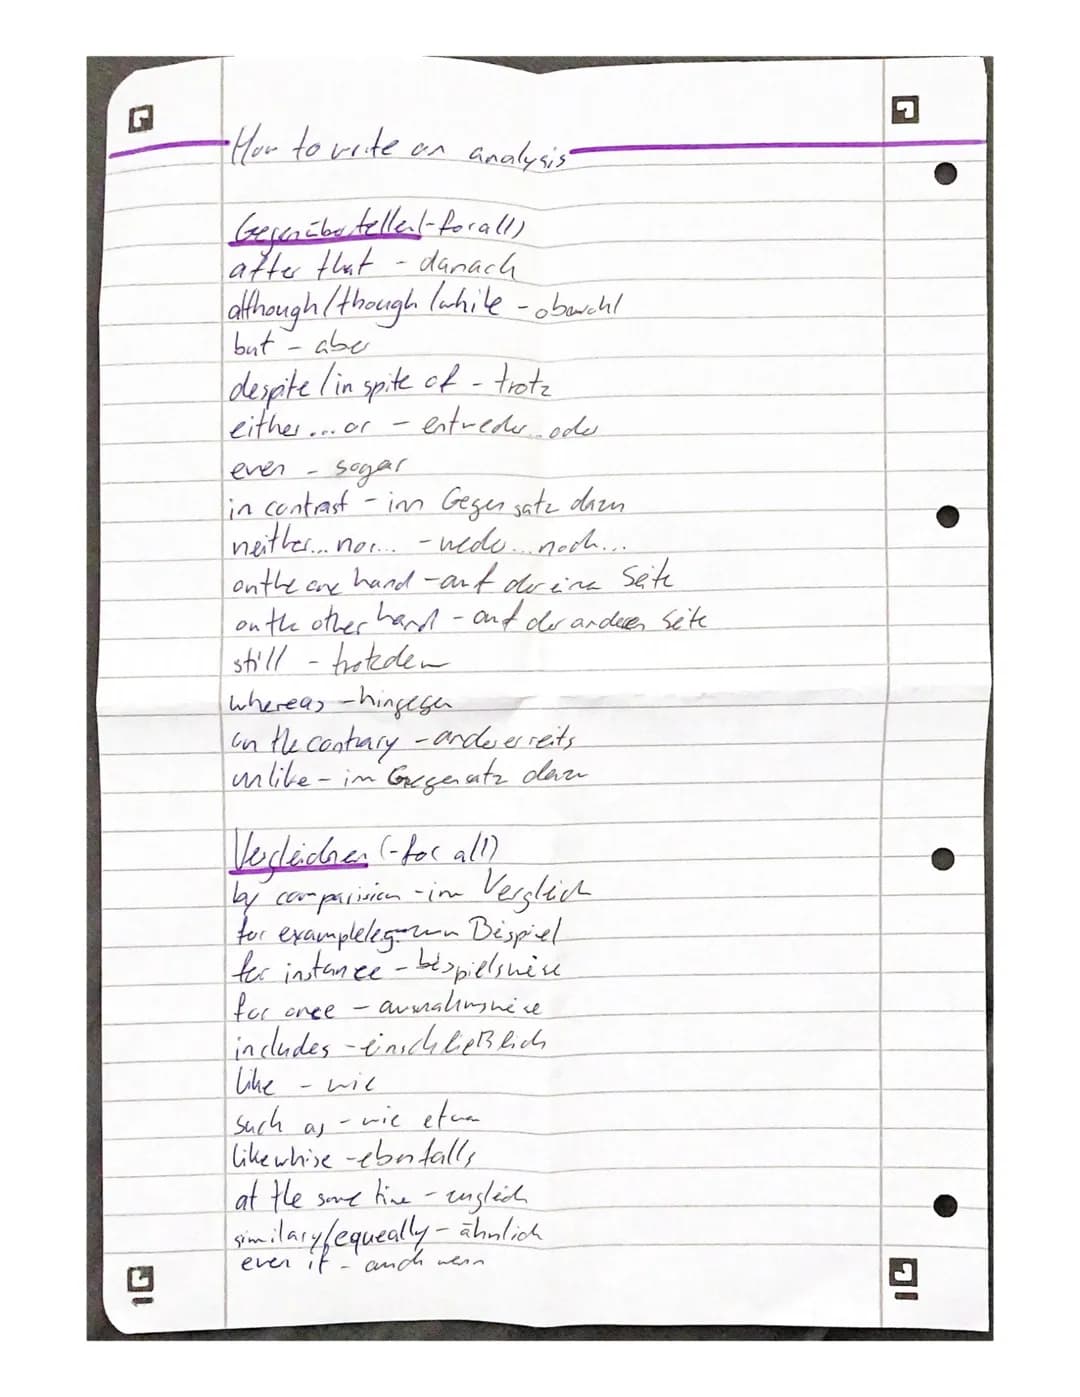 How to write an analysis
Gegenüberstellen (-for all)
after that - danach
although/though/while - obwohl
but - aber
despite/in spite of - trotz
either...or - entweder...oder
even - sogar
in contrast - im Gegensatz dazu
neither...nor... - weder...noch...
on the one hand - auf der eine Seite
on the other hand - auf der anderen Seite
still - trotzdem
whereas - hingegen
on the contrary - andererseits
unlike - im Gegensatz dazu
Vergleichen (-for all)
by comparision - im Vergleich
for example/eg - zum Beispiel
for instance - beispielsweise
for once - ausnahmsweise
includes - einschließlich
like - wie
such as - wie etwa
likewhise - ebenfalls
at the same time - zugleich
similary/equeally - ähnlich
even if - auch wenn